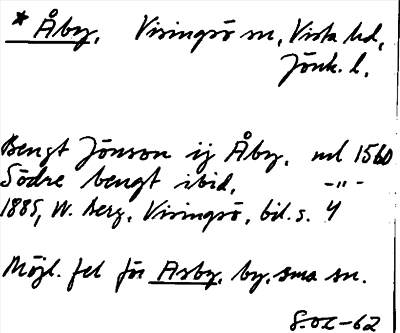 * Åby. Visingsö sn, Vista hd,
Jönk. l.
Bengt Jönson ij Åby. ml 1560
Södre bengt ibid. -"-
1885, W. Berg, Visingsö, bil. s. 4
Möjl. fel för Asby, by, sma sn.
S.OL-62